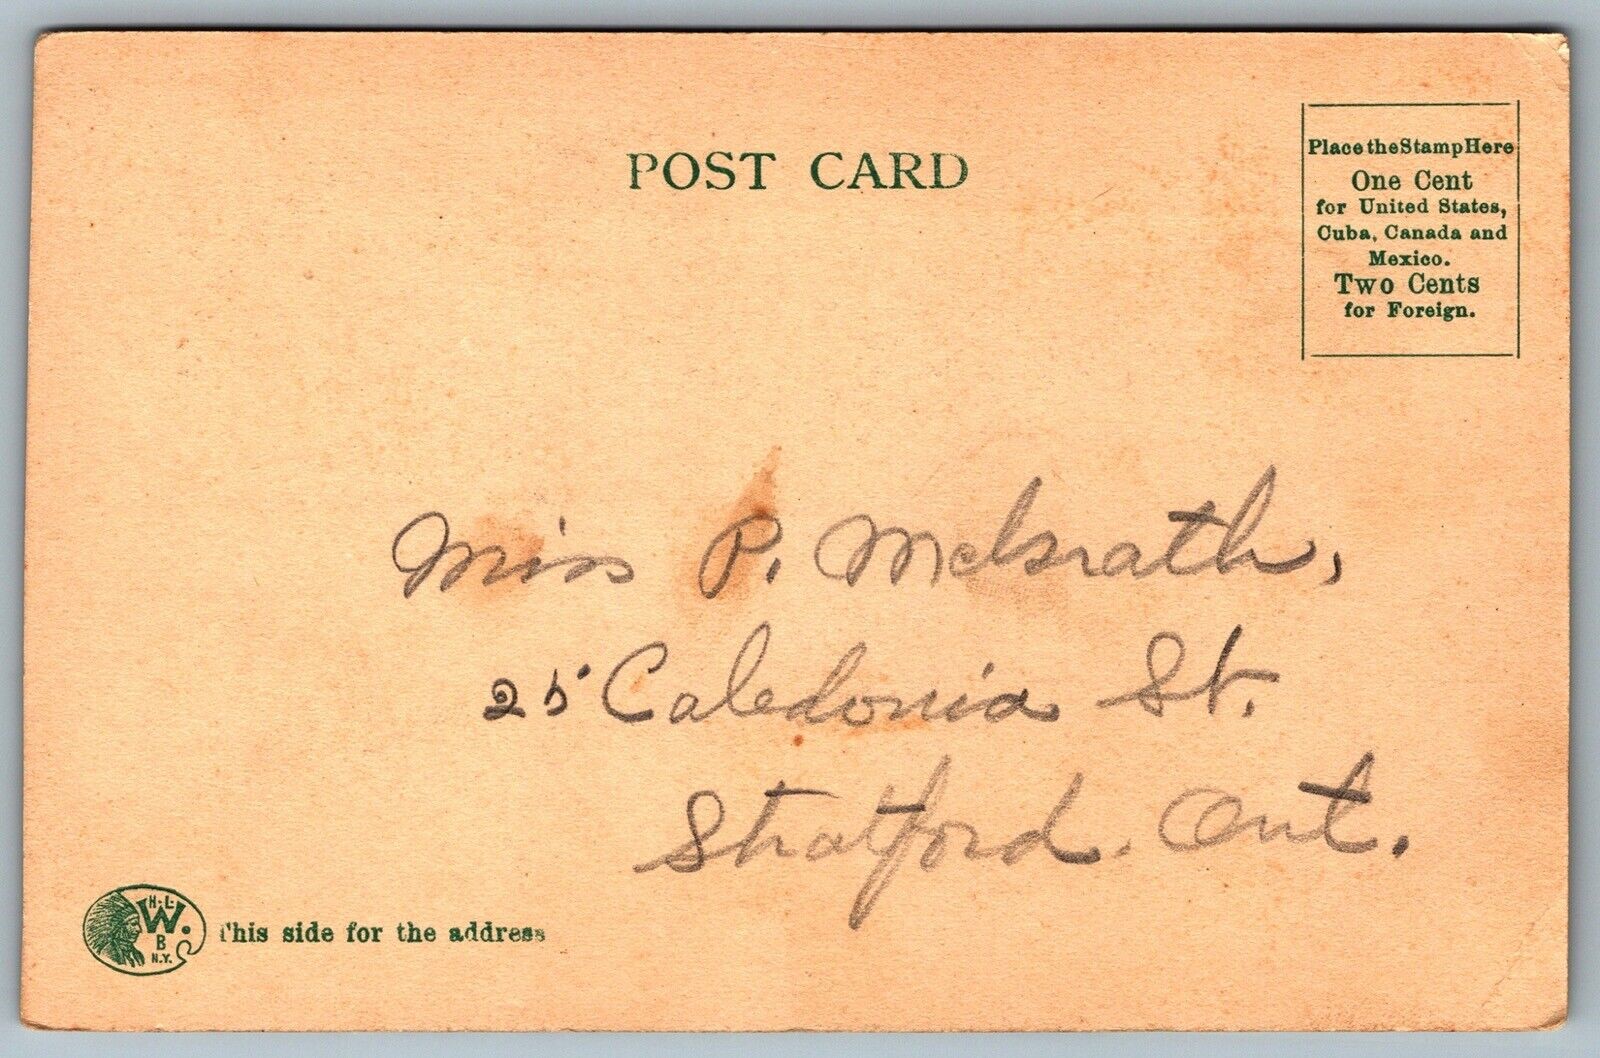 POST CARD
Place the Stamp Here
One Cent
for United States,
Cuba, Canada and
Mexico.
Two Cents
for Foreign.
Miss P. McIsrath,
25 Caledonia St.
Stratford. Ont.
H.L.
W.
B
N.Y.
This side for the address